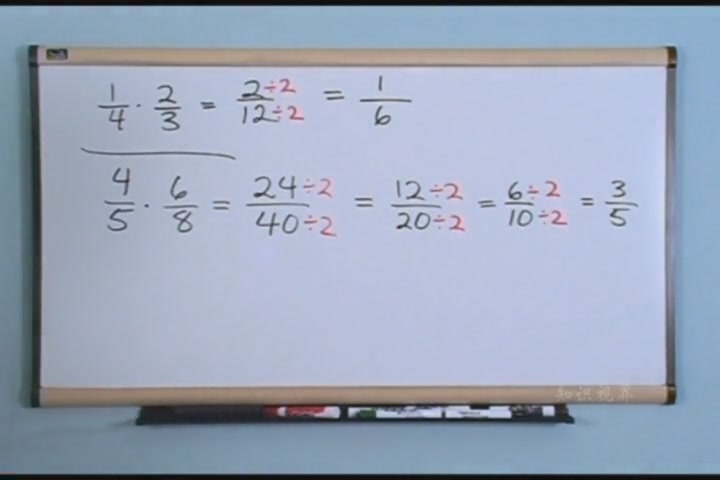 1/4 · 2/3 = 2÷2/12÷2 = 1/6
4/5 · 6/8 = 24÷2/40÷2 = 12÷2/20÷2 = 6÷2/10÷2 = 3/5
知识视界